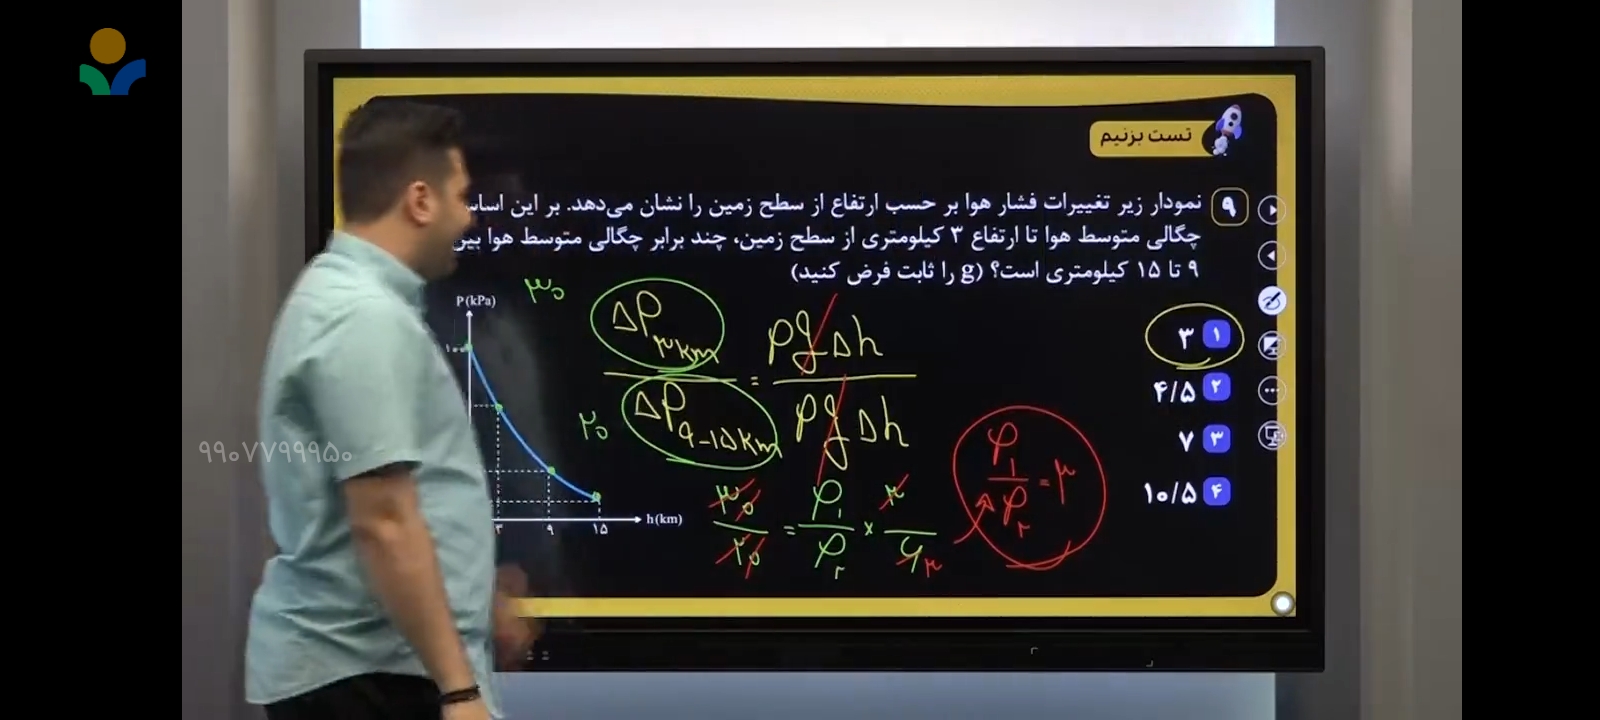 تست بزنیم
۹ نمودار زیر تغییرات فشار هوا بر حسب ارتفاع از سطح زمین را نشان می‌دهد. بر این اساس
چگالی متوسط هوا تا ارتفاع ۳ کیلومتری از سطح زمین، چند برابر چگالی متوسط هوا بین
۹ تا ۱۵ کیلومتری است؟ (g را ثابت فرض کنید)
۱ ۳
۲ ۴/۵
۳ ۷
۴ ۱۰/۵
P(kPa)
۳ ۹ ۱۵ h(km)
۳۰ ΔP ۳km = ρgΔh
۲۰ ΔP ۹-۱۵km ρgΔh
۳۰/۲۰ = ρ۱/ρ۲ × ۳/۶ ۲
ρ۱/ρ۲ = ۳
۹۹۰۷۷۹۹۹۵۰